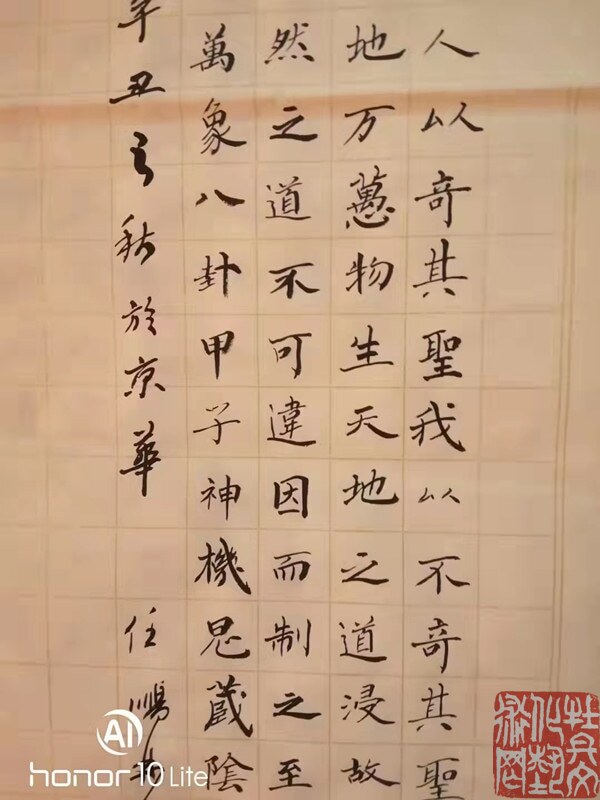 人以奇其聖我以不奇其聖
地万萬物生天地之道浸故
然之道不可違因而制之至
萬象八卦甲子神機鬼藏陰
辛丑之秋於京華 任鵬
AI
honor 10 Lite